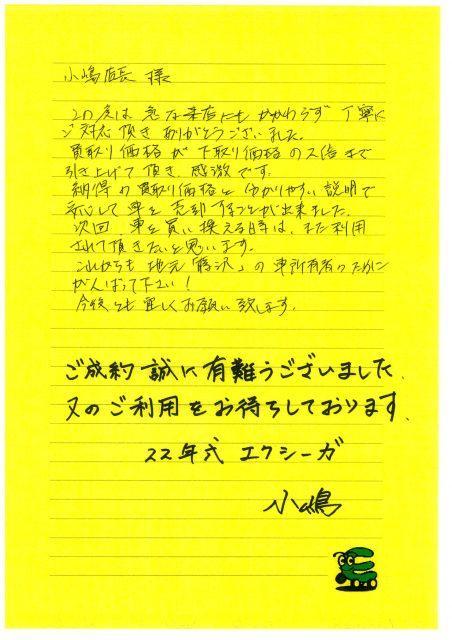 小嶋店長 様
この度は 急な来店にもかかわらず 丁寧に
ご対応 頂き ありがとうございました。
買取り価格が 下取り価格の 2倍まで
引き上げて頂き、感激です。
納得の買取り価格と 分かりやすい説明で
安心して 車を 売却することが出来ました。
次回 車を買い換える時は、また利用
されて頂きたいと思います。
これからも 地元「藤沢」の 車所有者のために
がんばって下さい!
今後とも 宜しくお願い致します。
ご成約 誠に有難うございました。
又のご利用をお待ちしております。
22年式 エクシーガ
小嶋